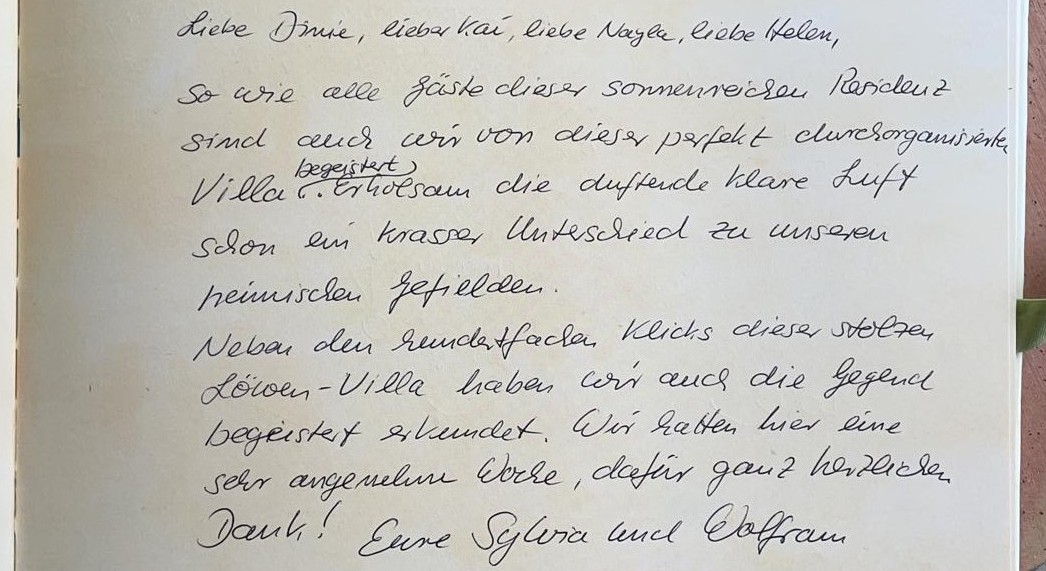 Liebe Dinie, lieber Kai, liebe Nayla, liebe Helen,
so wie alle Gäste dieser sonnenreichen Residenz
sind auch wir von dieser perfekt durchorganisierten
begeistert
Villa . Erholsam die duftende klare Luft
schon ein krasser Unterschied zu unseren
heimischen Gefielden.
Neben den hundertfachen Klicks dieser stolzen
Löwen-Villa haben wir auch die Gegend
begeistert erkundet. Wir hatten hier eine
sehr angenehme Woche, dafür ganz herzlichen
Dank! Eure Sylvia und Wolfram